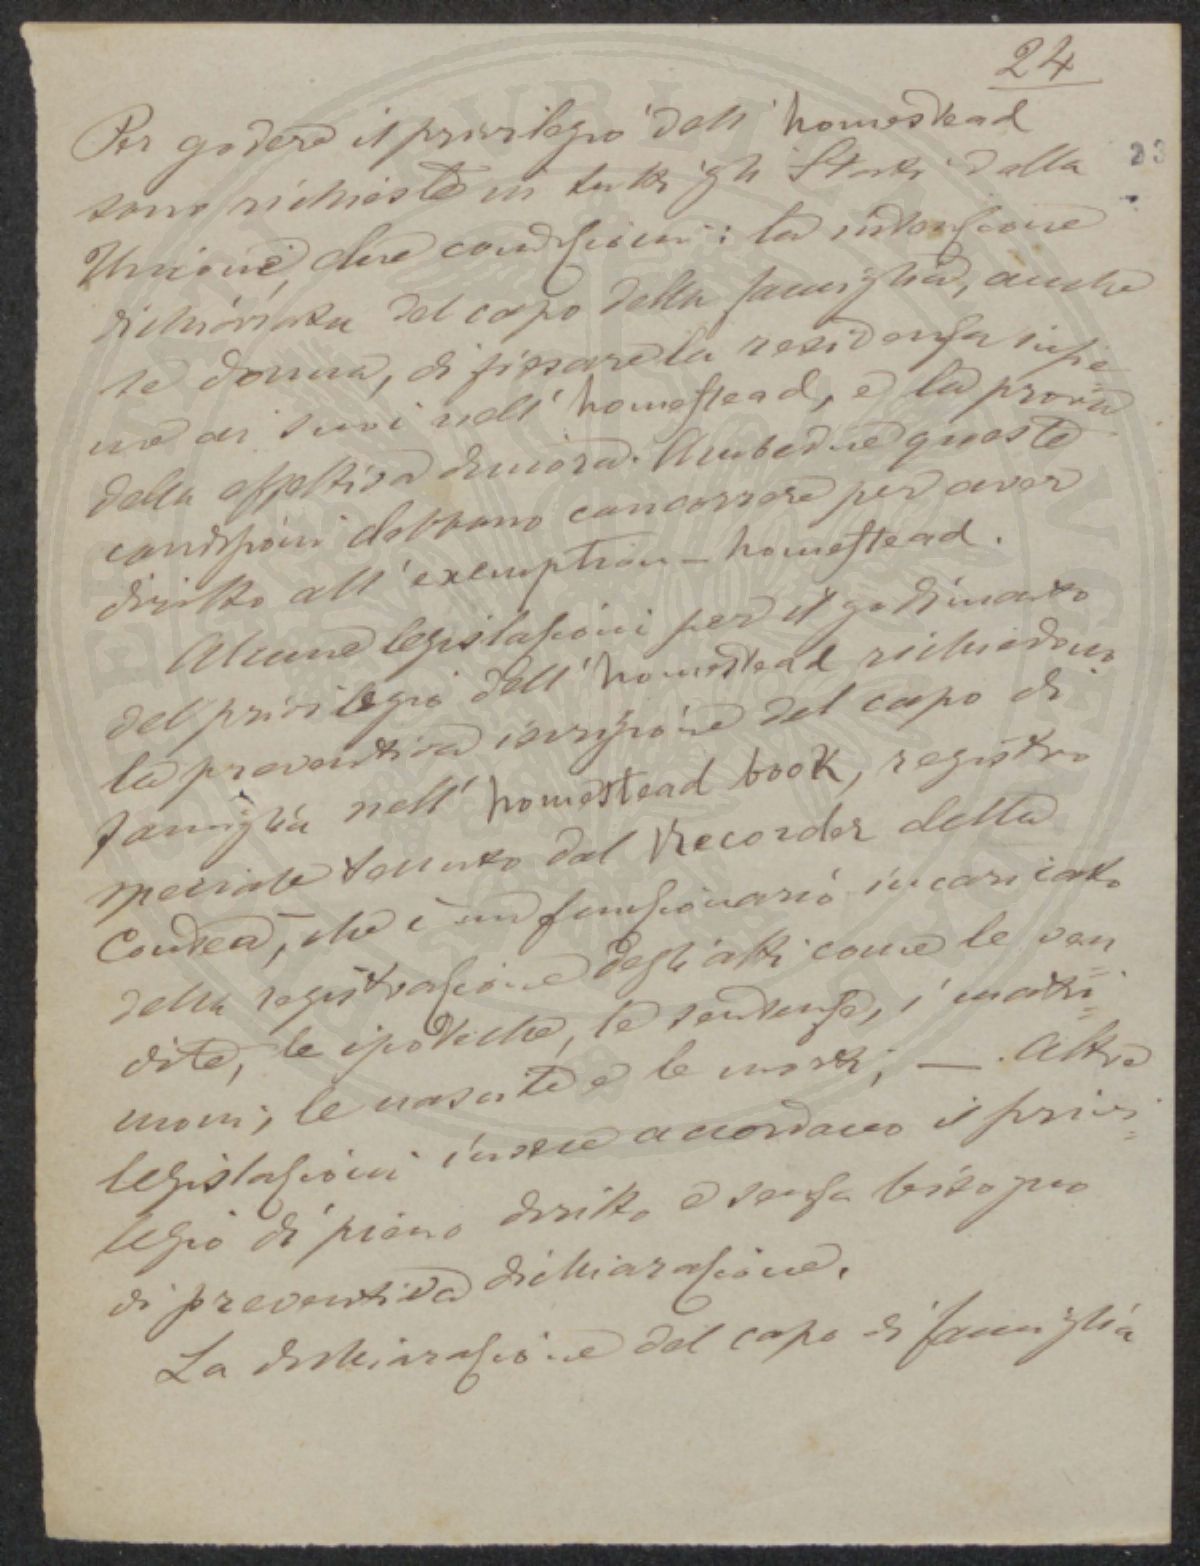 24
23
Per godere il privilegio dell' homestead
sono richieste in tutti gli Stati della
Unione, due condizioni: la intenzione
dichiarata del capo della famiglia, anche
se donna, di fissare la residenza insie=
me ai suoi nell' homestead, e la prova
della effettiva dimora. Ambedue queste
condizioni debbono concorrere per aver
diritto all' exemption - homestead.
Alcune legislazioni per il godimento
del privilegio dell' homestead richiedono
la preventiva iscrizione del capo di
famiglia nell' homestead book, registro
speciale tenuto dal Recorder della
Contea, che è un funzionario incaricato
della registrazione degli atti come le ven=
dite, le ipoteche, le sentenze, i matri=
moni, le nascite e le morti; — Altre
legislazioni invece accordano il privi=
legio di pieno diritto e senza bisogno
di preventiva dichiarazione.
La dichiarazione del capo di famiglia